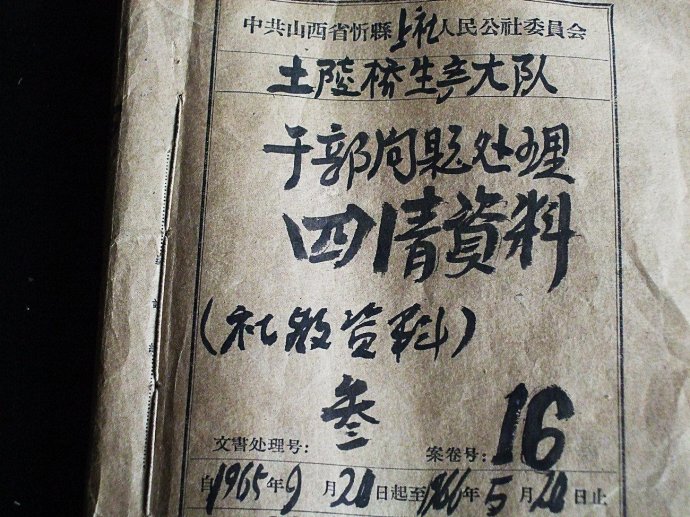 中共山西省忻縣上社人民公社委員会
土陵桥生产大队
干部问题处理
四清資料
（社教资料）
叁 16
文書处理号： 案卷号：
自1965年9月20日起至1966年5月20日止